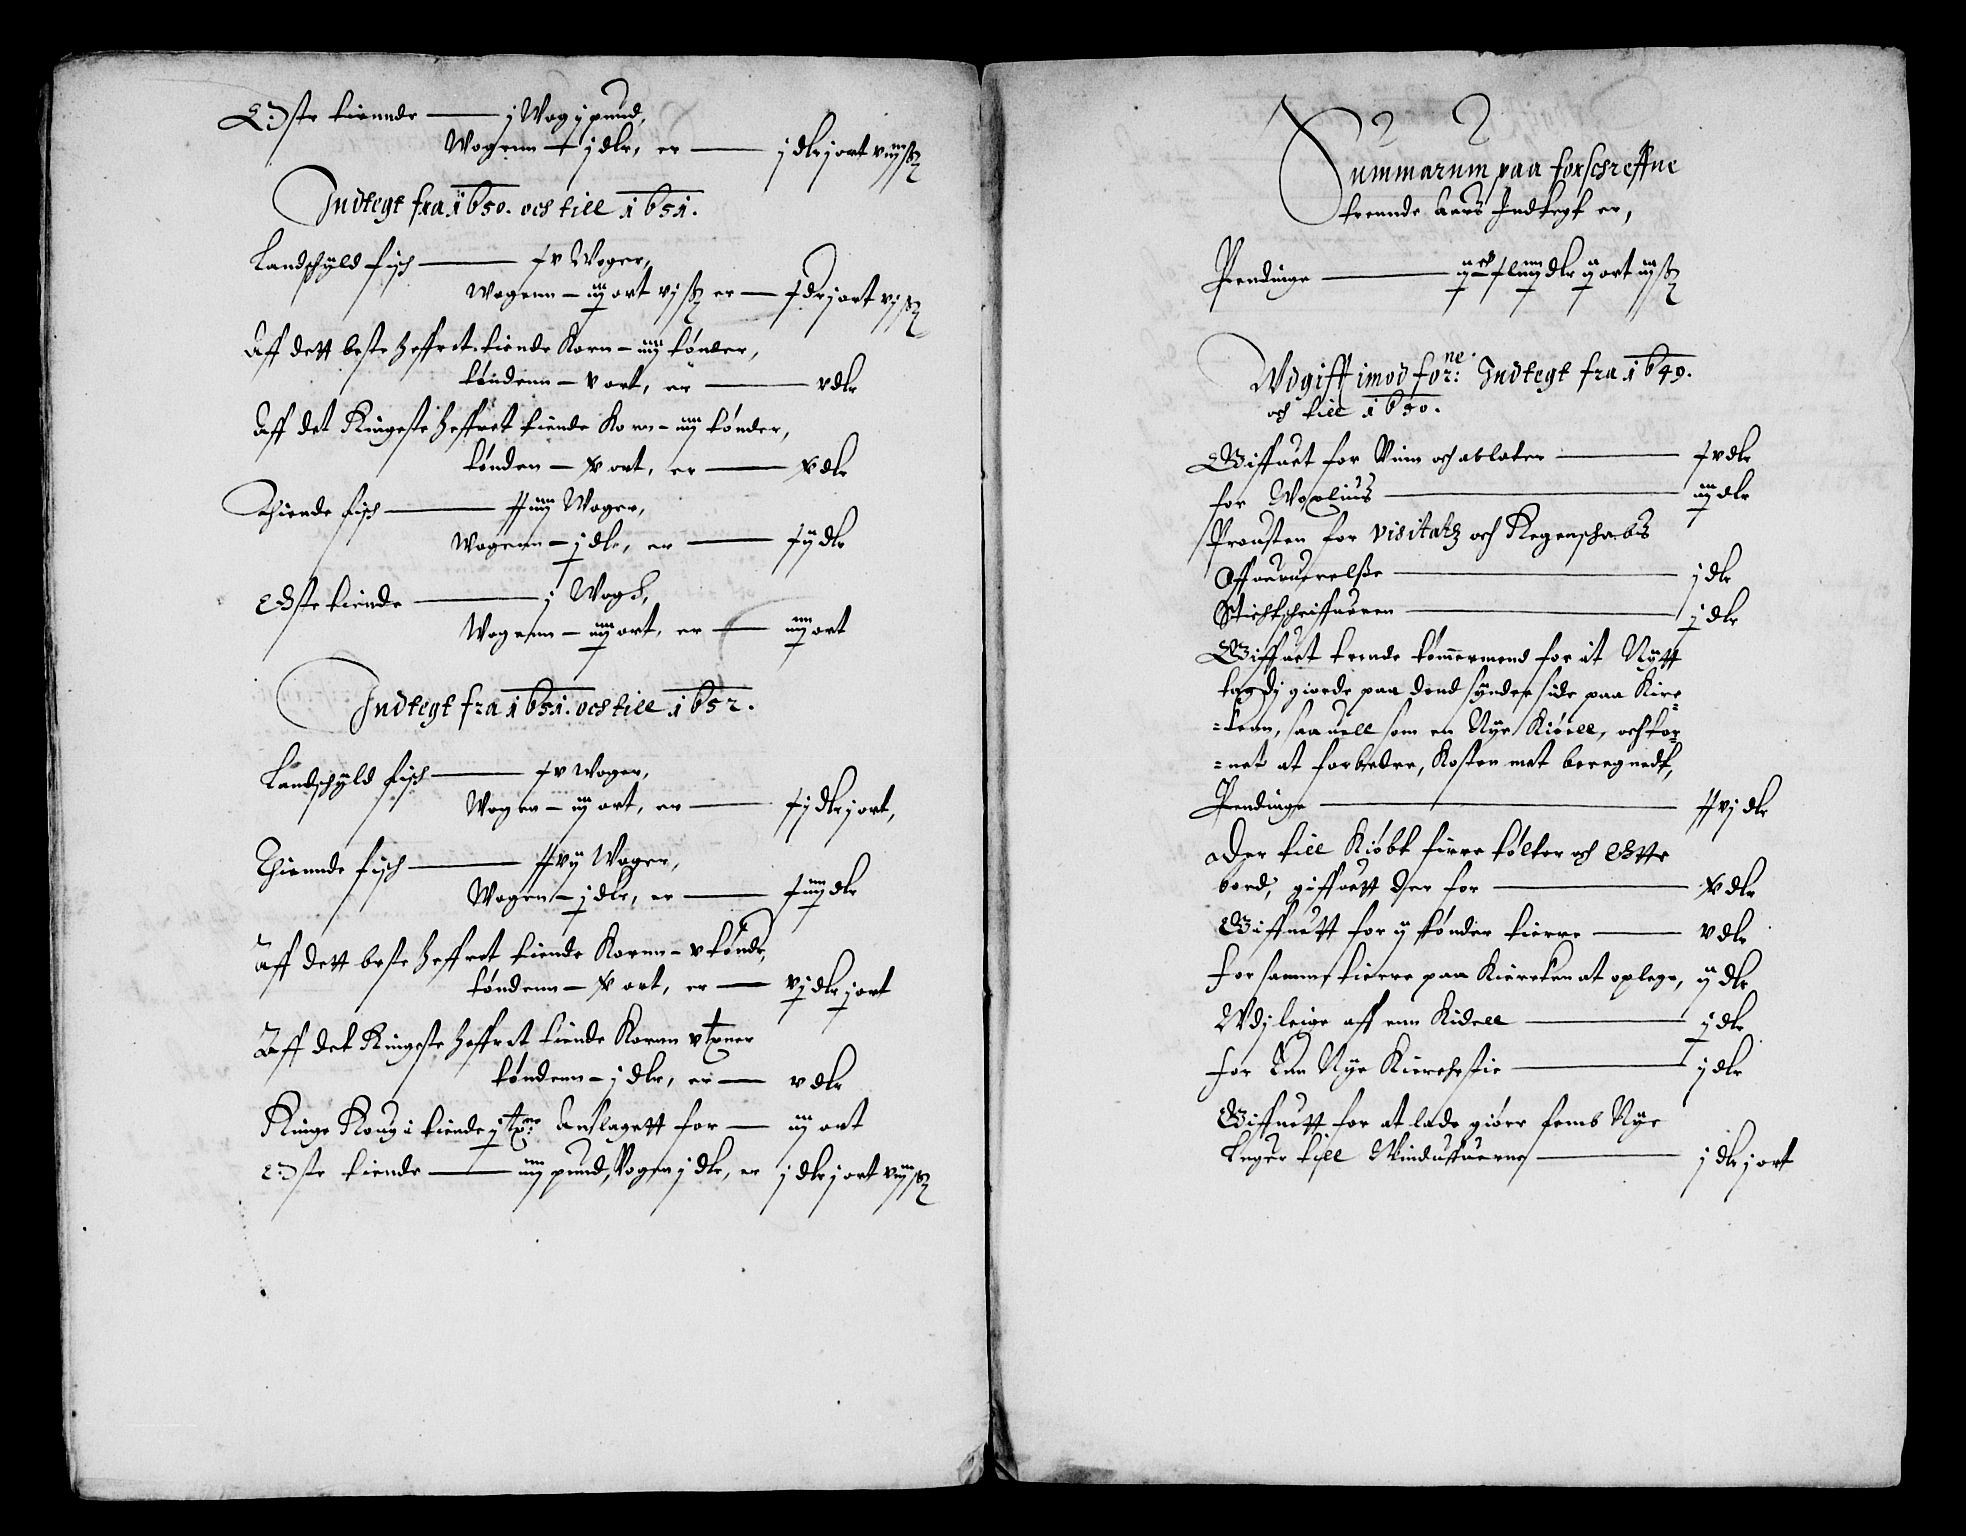 Oste tiennde — j Wog j pund,
Wogenn — j dlr, er — j dlr j ort viij ß
Indtegt fra 1650. och till 1651.
Landschyld fisch — xv Woger,
Wogenn — iij ort vj ß er — x dlr j ort vj ß
Aff dett beste hessret tiende Korn — iiij tønder,
tøndenn — v ort, er — v dlr
Aff det Ringeste hessret tiende Korn — iiij tønder,
tønden — ort, er — dlr
Thiende fisch — Woger,
Wogenn — j dlr, er — dlr
Oste tiende — j Wogh,
Wogenn — iiij ort, er — iiij ort
Indtegt fra 1651. och till 1652.
Landschyld fisch — xv Woger,
Wogen — iij ort, er — xj dlr j ort,
Thiennde fisch — Woger,
Wogen — j dlr, er — dlr
Aff dett beste hessret tiende Kornn — v tøndr,
tøndenn — v ort, er — vj dlr j ort
Aff det Ringeste hessret tiende Kornn v tøner
tøndenn — j dlr, er — v dlr
Ringe Roug i tiende j Anslagett for — iij ort
Oste tiende — iiij pund, Vogen j dlr, er j dlr j ort viij ß
Summarum paa forschreffne
trennde Aars Indtegt er,
Pendinge — dlr ij ort iij ß
Wdgifft imod forne: Indtegt fra 1649.
och till 1650.
Giffuet for Viin och ablater — xv dlr
for Woxlius — iij dlr
Prousten for visitatz och Regenschabs
Offueruerelsse — j dlr
Stichtschriffueren — j dlr
Giffuet trende tømmermend for it Nytt
tag dj giorde paa dend synder side paa Kirc-
-kenn, saa uell som en Nye Kiøell, och tor-
-net at forbedre, Kosten met beregnedt,
Pendinge — dlr
Der till Kiøbt fierre tølter och Otte
bord, giffuett der for — dlr
Giffuett for ij tønder tierre — v dlr
for samme tierre paa Kiercken at oplege, ij dlr
Wdj leige aff enn Kidell — j dlr
for Enn Nye Kierchestie — j dlr
Giffuett for at lade giøre femb Nye
Luger till Winduffuerne — j dlr j ort